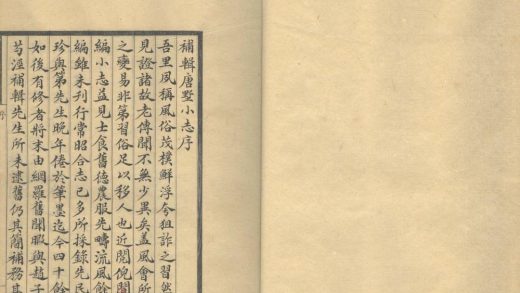 補輯唐墅小志序
吾里夙稱風俗茂樸鮮浮夸狙詐之習然
見證諸故老傳聞不無少異矣盖風會所
之變易非第習俗足以移人也近閱倪閣
編小志益見士食舊德農服先疇流風餘
編雖未刊行常昭合志已多所採錄先民
珍與第先生晚年倦於筆墨迄今四十餘
如後有修者將末由網羅舊聞暇與趙子
芶涇補輯先生所未逮舊仍其簡補務其
序